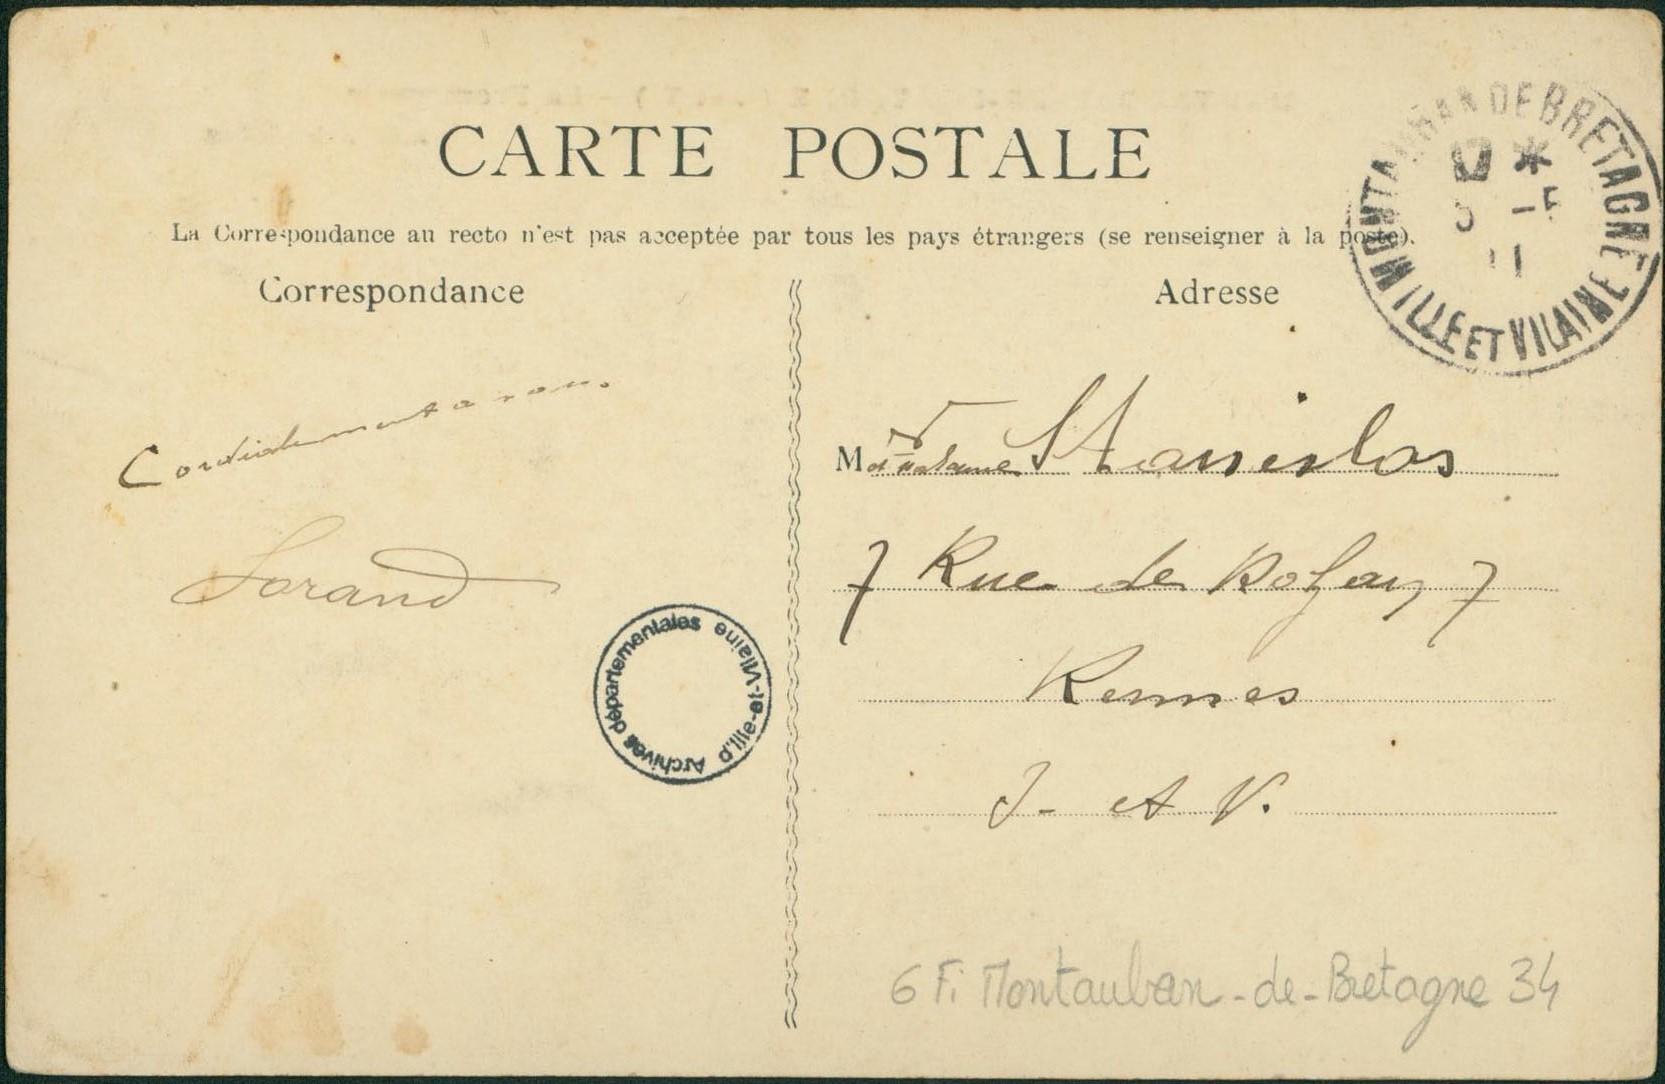 CARTE POSTALE
La Correspondance au recto n'est pas acceptée par tous les pays étrangers (se renseigner à la poste).
Correspondance
Adresse
MONTAUBAN DE BRETAGNE
ILLE ET VILAINE
5 -5
11
Cordialement à vous.
Lorand
Mr et Madame Stanislas
7 Rue de Rohan 7
Rennes
I- et V.
Archives départementales d'Ille-et-Vilaine
6 Fi Montauban-de-Bretagne 34